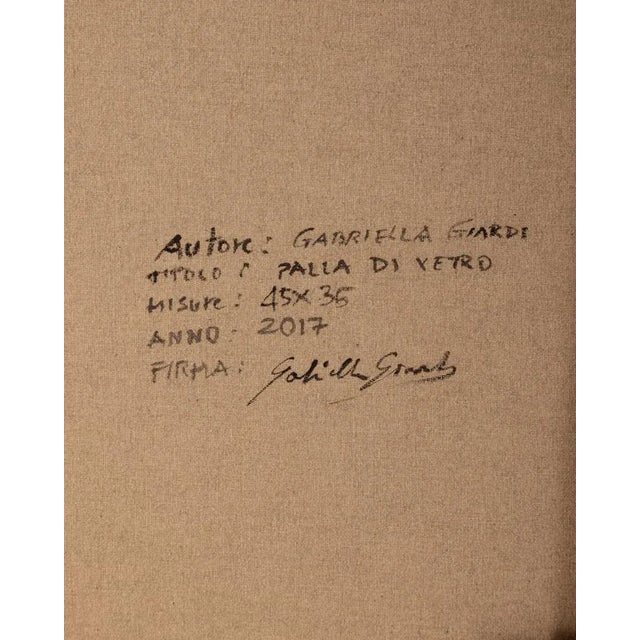 Autore: GABRIELLA GIARDI
TITOLO: PALLA DI VETRO
MISURE: 45X35
ANNO: 2017
FIRMA: Gabriella Giardi